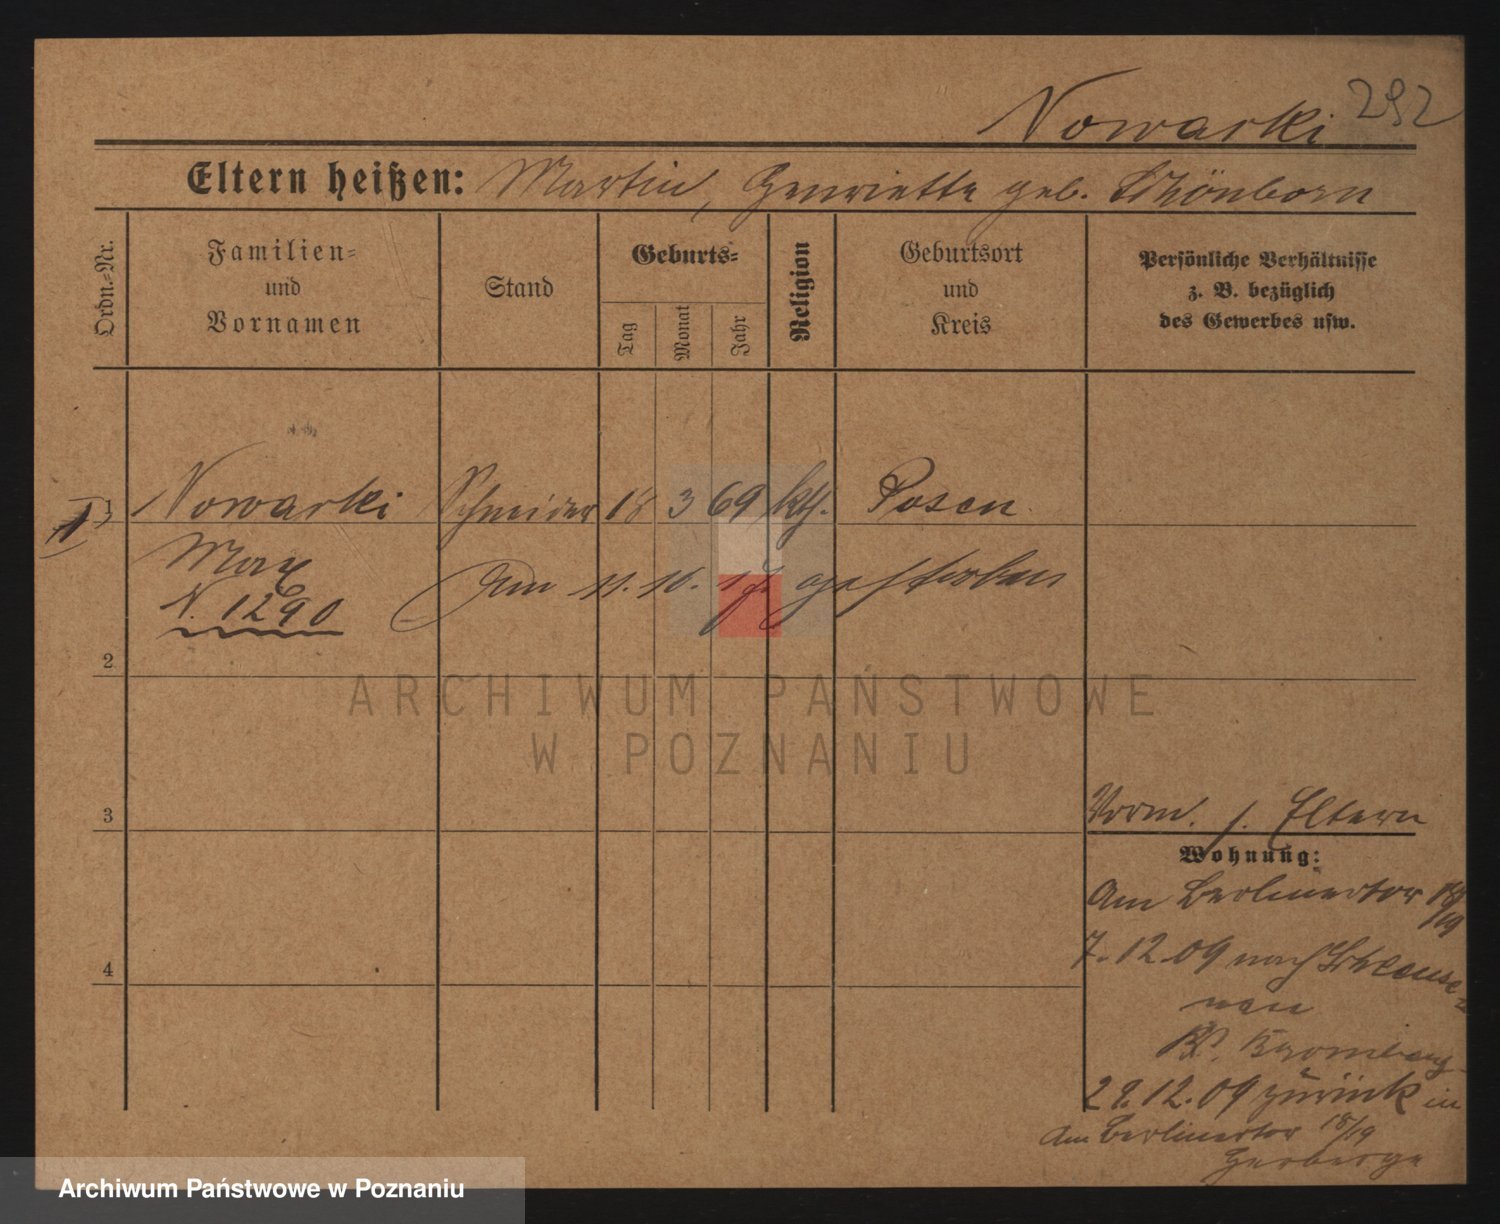 292
Nowacki
Eltern heißen: Martin, Henriette geb. Schönborn
Ordn.-Nr.
Familien-
und
Vornamen
Stand
Geburts-
Tag
Monat
Jahr
Religion
Geburtsort
und
Kreis
Persönliche Verhältnisse
z. B. bezüglich
des Gewerbes usw.
1 Nowacki Schneider 18 3 69 kth. Posen
Max
N. 1290
Am 11. 10. gestorben
2
ARCHIWUM PAŃSTWOWE
W POZNANIU
3
Vorm. s. Eltern
Wohnung:
Am Berlinertor 18/19
7.12.09 nach
4
Kr. Bromberg
29.12.09 zurück in
Am Berlinertor 18/19
Herberge
Archiwum Państwowe w Poznaniu